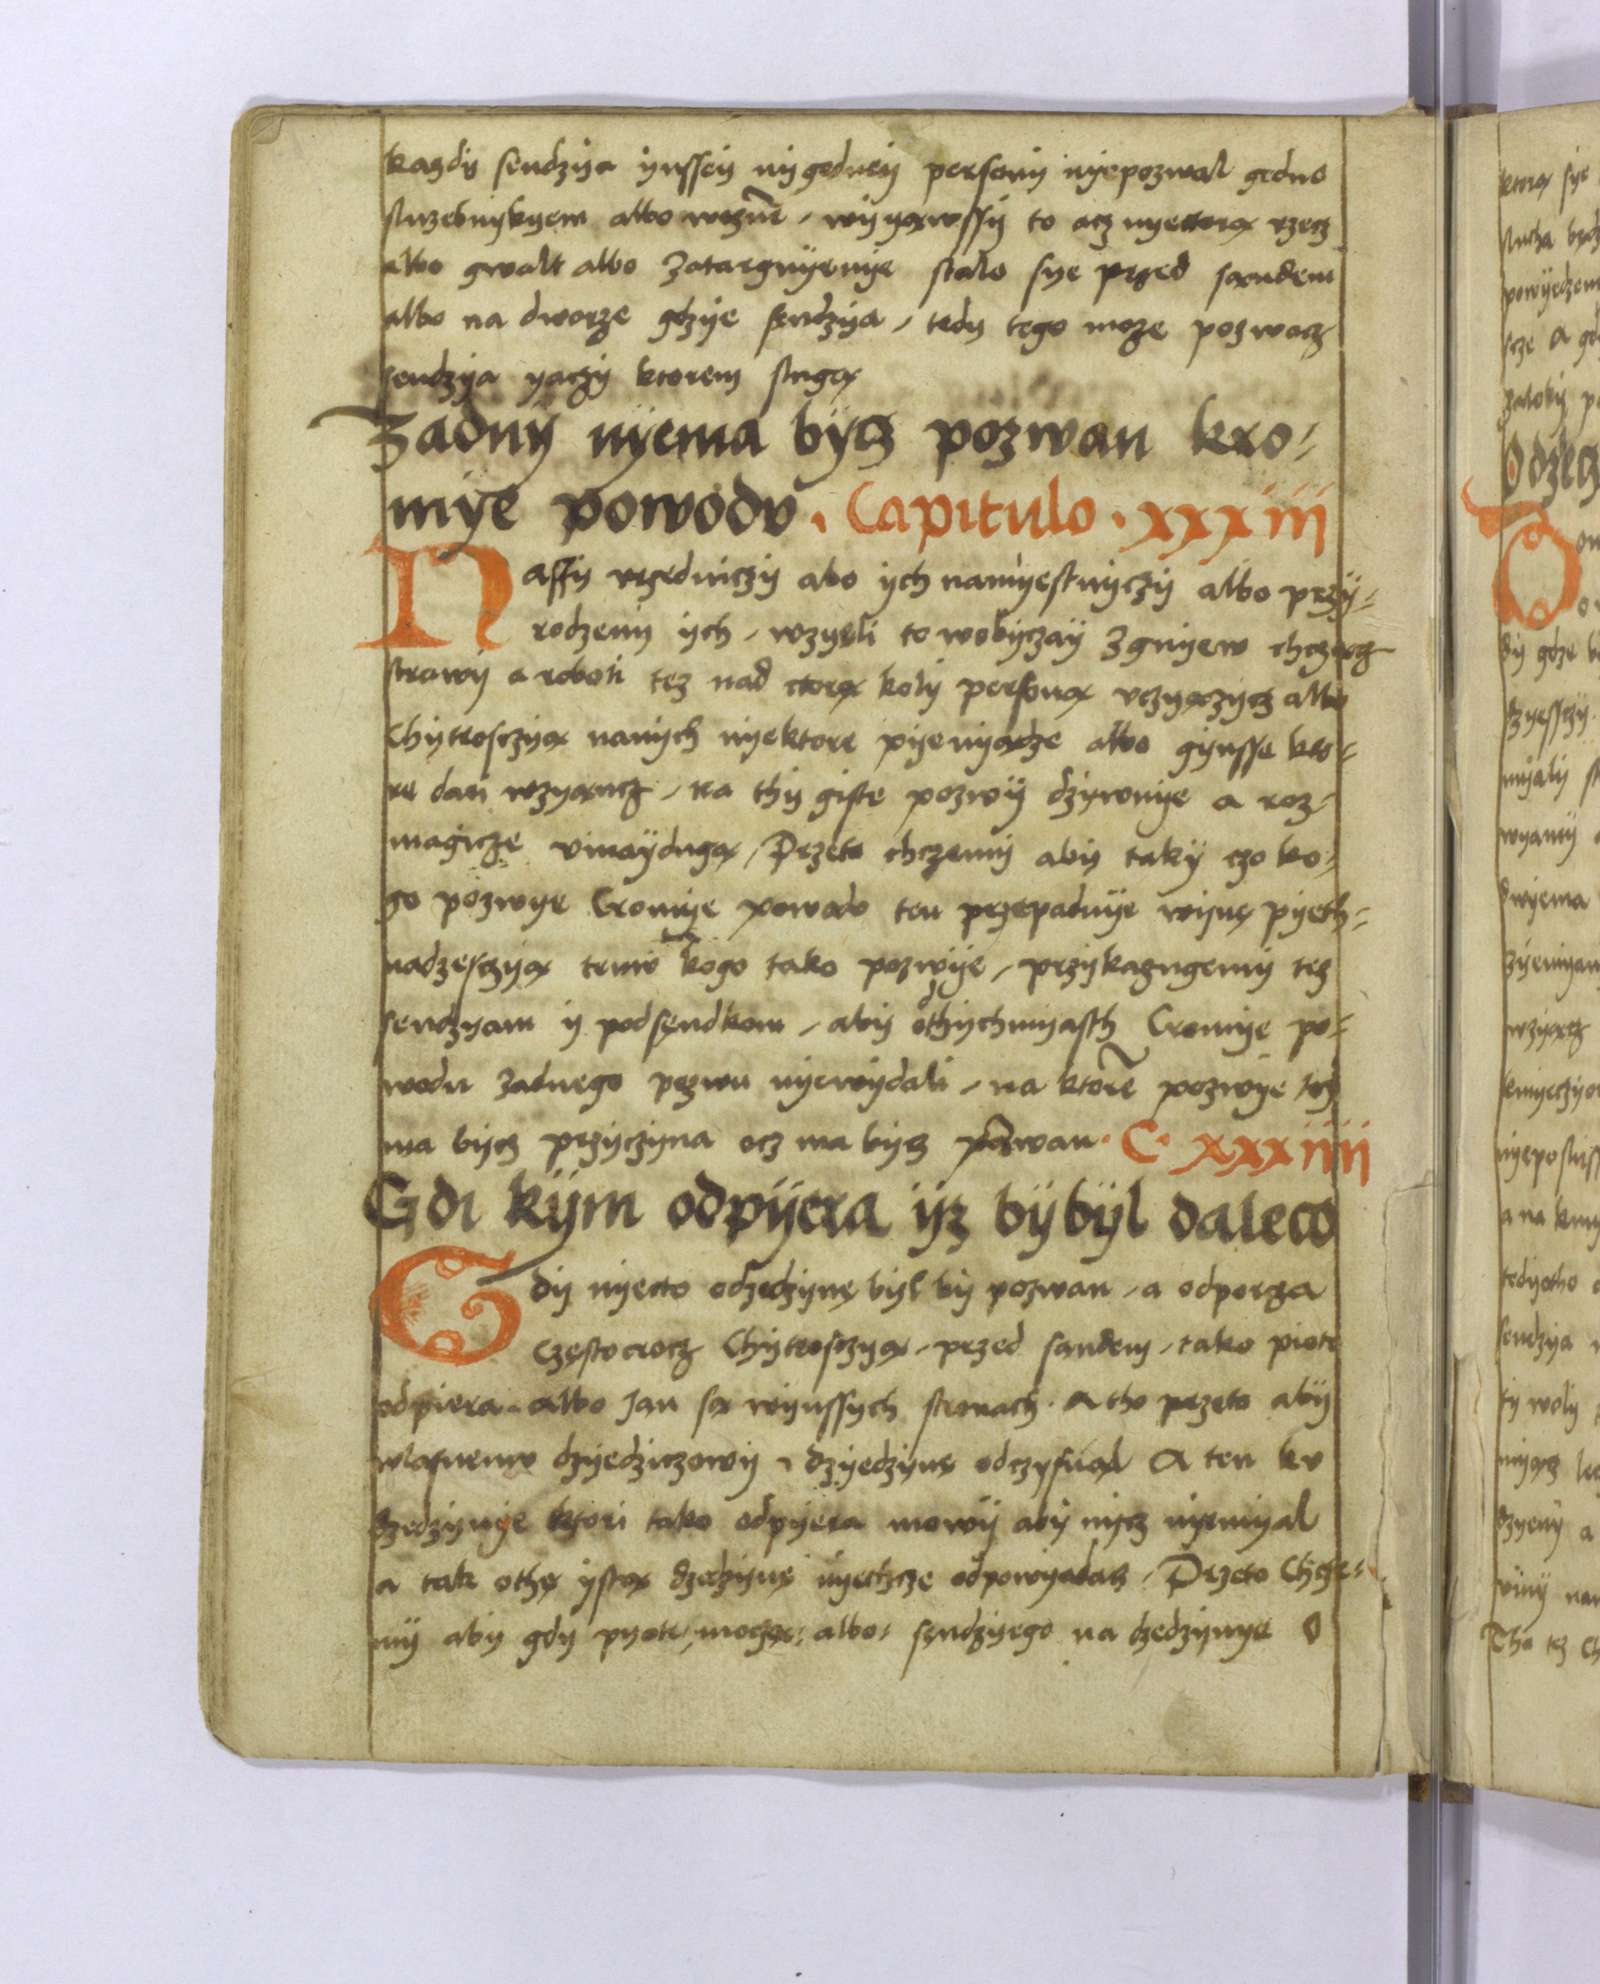 kazdy sendzya ynssey nygedney persony nyepozwal gedno
sluzebnykyem albo wozne, wyyąwssy to acz nyectora rzecz
albo gwalt albo zatargnyenye stalo sye przed sandem
albo na dworze gdzye sendzya, tedy tego moze pozwacz
sendzya yaczy ktorem slugą
Zadny nyema bycz pozwan kro-
mye powodv. Capitulo. xxxiii
Nassy vrzedniczy abo ych namyestnyczy albo przy-
rodzeny ych, wzyęli to wobyczay zgnyew chcząncz
strawy a roboti tez nad ctorą koly personą vczyączycz albo
Chytrosczyą nanych nyektore pyenyądze albo gynsse kto-
re dani wzyąncz, na thy giste pozwy dzywnye a roz-
magicze vinaydugą, Przeto chczemy aby taky czo ko-
go pozwye Cromye powodv ten przepadnye wynę pyeth-
nadzesczya temv kogo tako pozwye, przykazugemy tez
sendzyam y podsendkom, aby othychmyasth Cromye po-
wodu zadnego pozwu nyewydali, na ktore pozwye tez
ma bycz przyczyna ocz ma bycz pozwan. C. xxxiiii
Gdi kym odpyera yz bybyl daleco
Gdy nyecto odzedzynę byl by pozwan, a odporza
Częstocrocz Chytrosczyą, przed sandem, tako piotr
odpiera albo Jan są wynssych stronach. A tho przeto aby
wlasnemv dzyedziczowy dzyedzynę odczysnąl A ten kv
dzedzynye ktori tako odpyera mowy aby nycz nyemyal
a tak othę ystą dzedzynę nyechcze odpowyadacz, Przeto Chcze-
my aby gdy pyotr, moczą, albo, sendzyego na dzedzynye o